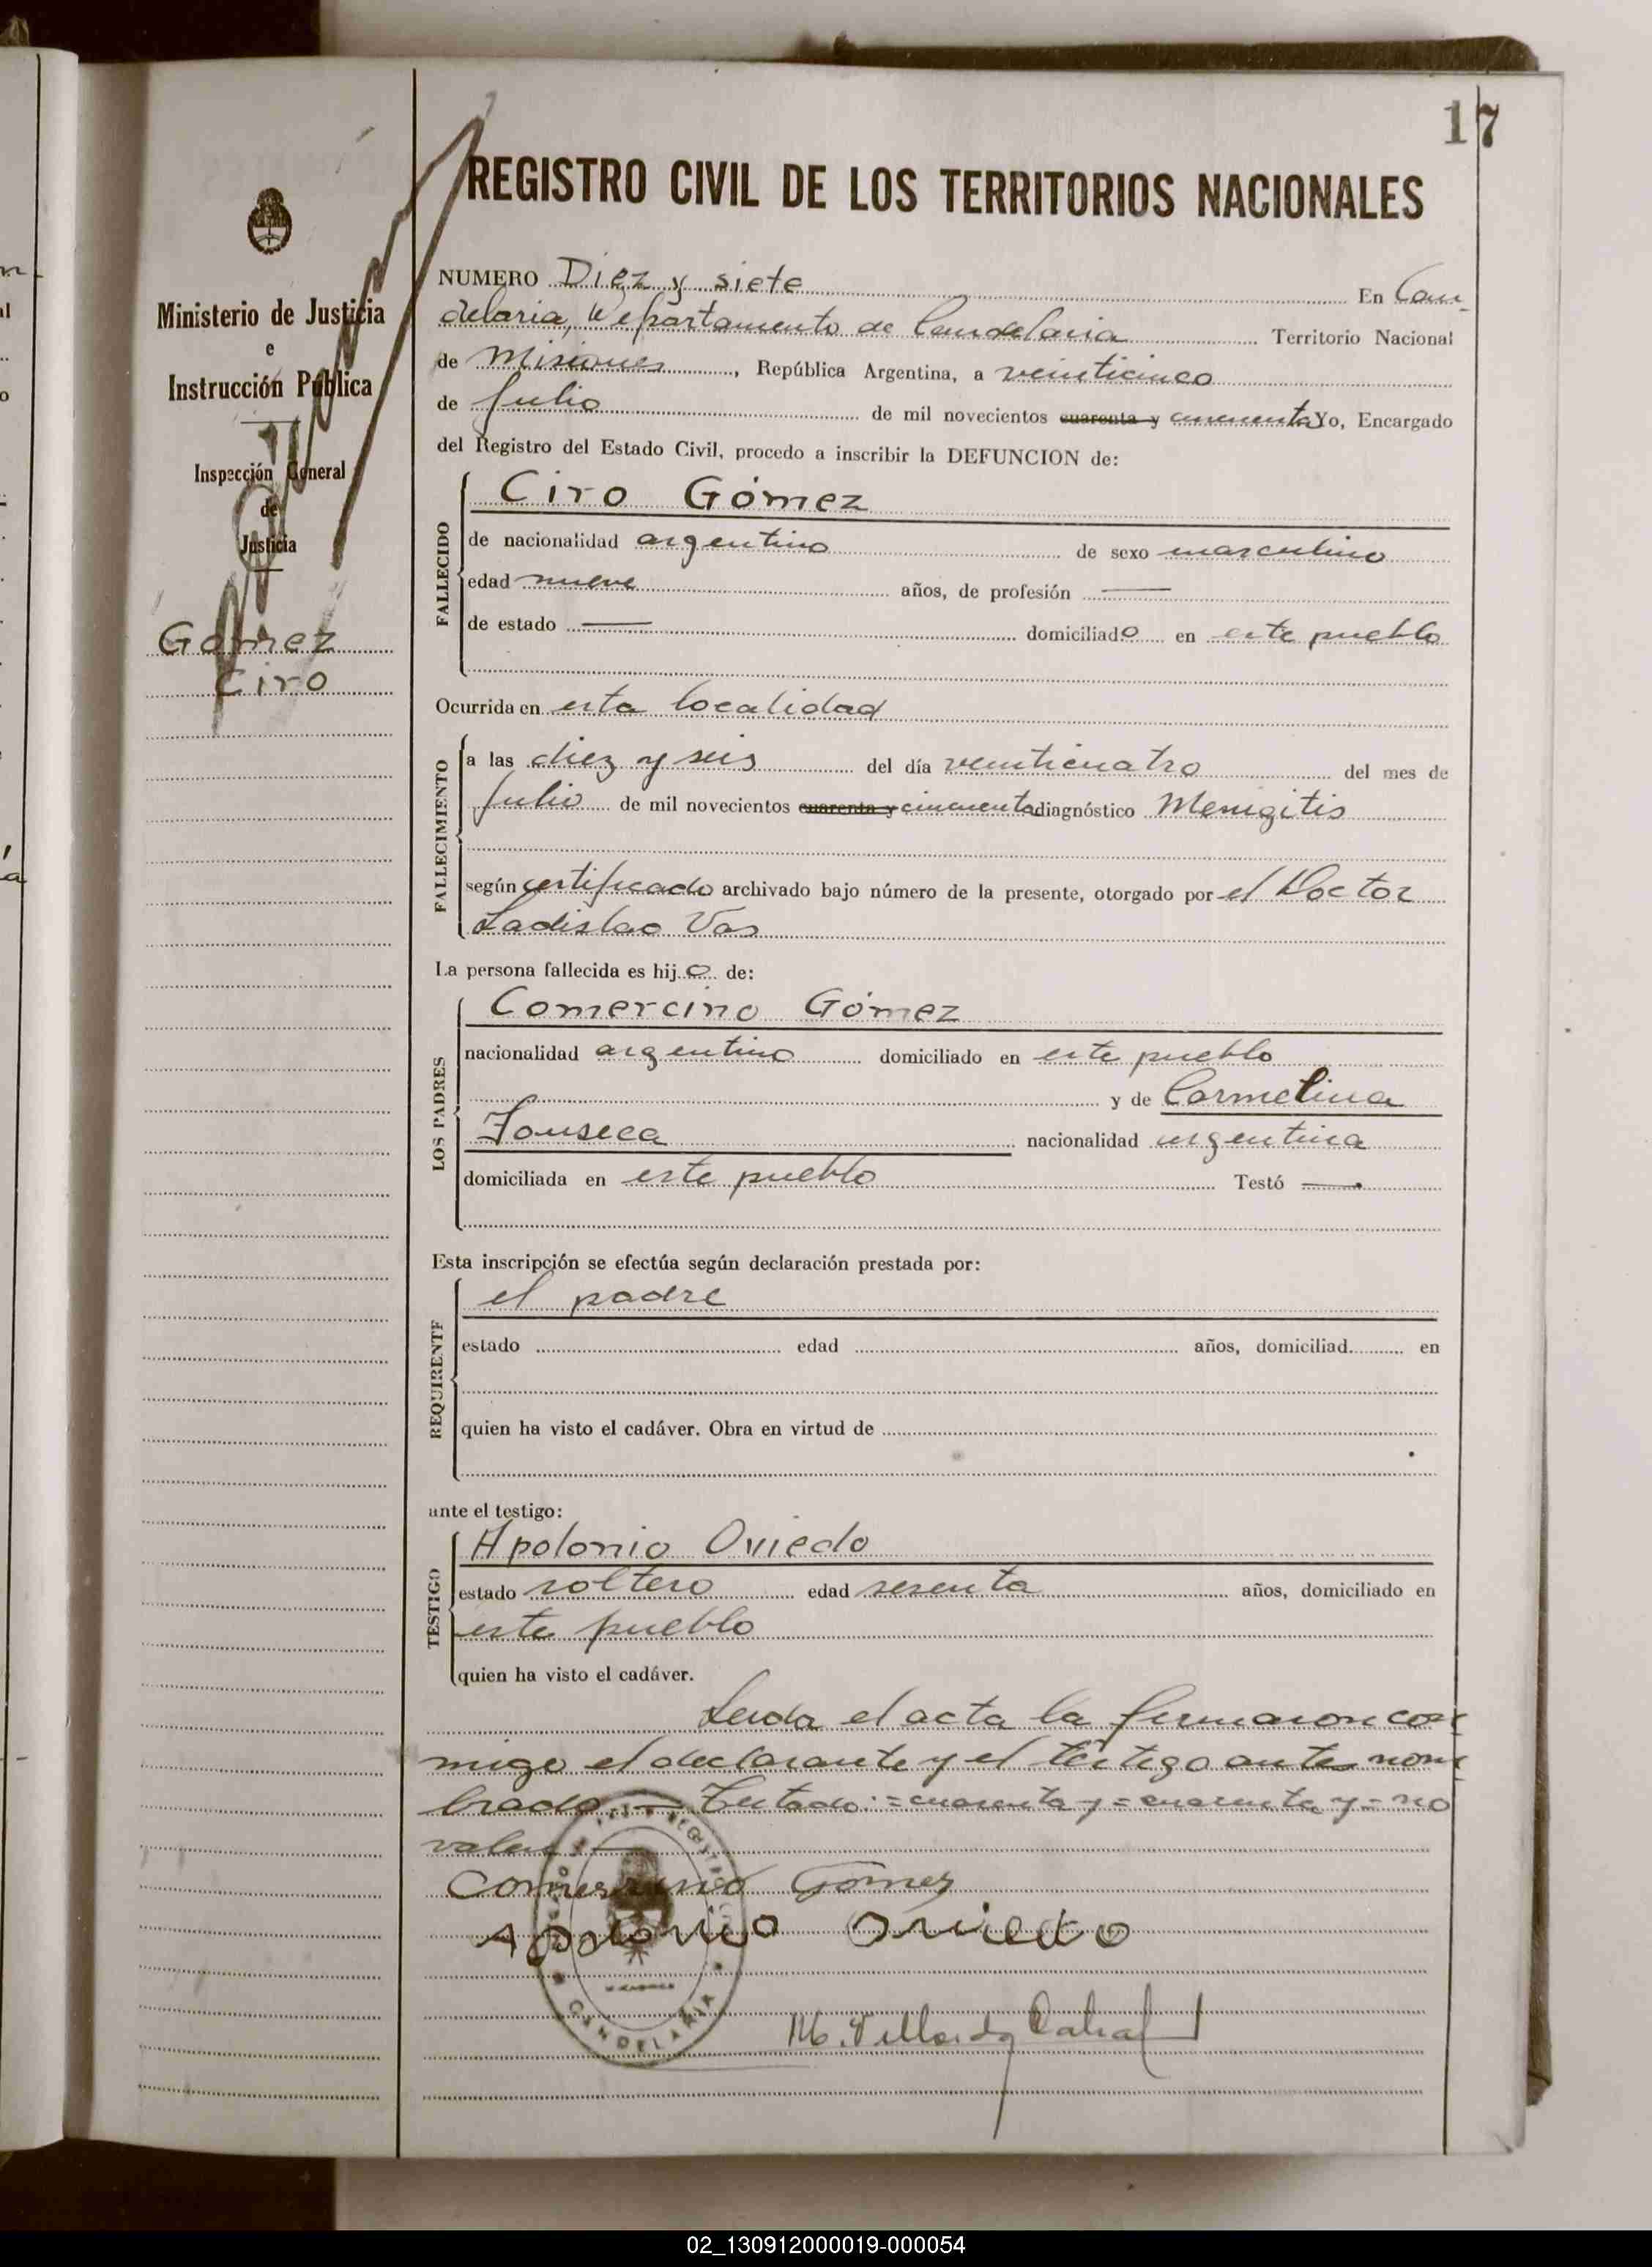 17
REGISTRO CIVIL DE LOS TERRITORIOS NACIONALES
Ministerio de Justicia
e
Instrucción Pública
Inspección General
de
Justicia
Gómez
Ciro
NUMERO Diez y siete En Can-
delaria, Departamento de Candelaria Territorio Nacional
de Misiones, República Argentina, a veinticinco
de Julio de mil novecientos cuarenta y cincuenta Yo, Encargado
del Registro del Estado Civil, procedo a inscribir la DEFUNCION de:
FALLECIDO
Ciro Gómez
de nacionalidad argentino de sexo masculino
edad nueve años, de profesión —
de estado — domiciliado en este pueblo
Ocurrida en esta localidad
FALLECIMIENTO
a las diez y seis del día veinticuatro del mes de
Julio de mil novecientos cuarenta y cincuenta diagnóstico Menigitis
según certificado archivado bajo número de la presente, otorgado por el Doctor
Ladislao Vas
La persona fallecida es hijo de:
LOS PADRES
Comercino Gómez
nacionalidad argentino domiciliado en este pueblo
y de Carmelina
Fonseca nacionalidad argentina
domiciliada en este pueblo Testó —.
Esta inscripción se efectúa según declaración prestada por:
REQUIRENTE
el padre
estado edad años, domiciliad en
quien ha visto el cadáver. Obra en virtud de
ante el testigo:
TESTIGO
Apolonio Oviedo
estado soltero edad sesenta años, domiciliado en
este pueblo
quien ha visto el cadáver.
Leida el acta la firmaron con
migo el declarante y el testigo antes nom
brado.— Testado:=cuarenta y=cuarenta y=no
valen.—
Comercino Gomez
Apolonio Oviedo
CANDELARIA
02_130912000019-000054